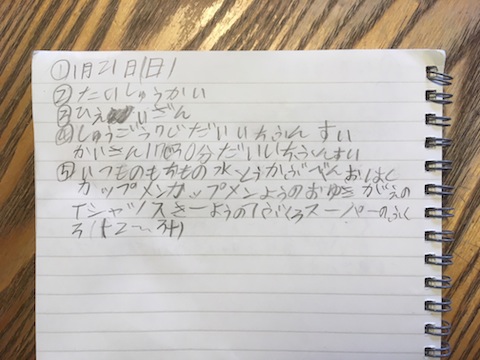 ①1月21日(日)
②たいしゅうかい
③ひえいざん
④しゅうごう7じだいいちゅうおんすい
かいさん17じ30分だいいちゅうおんすい
⑤いつものもちもの水とうかっぱべんとうおはし
カップメンカップメンようのおゆきがえの
Tシャツ スキーようのてぶくろスーパーのふく
ろ(+2〜3+)